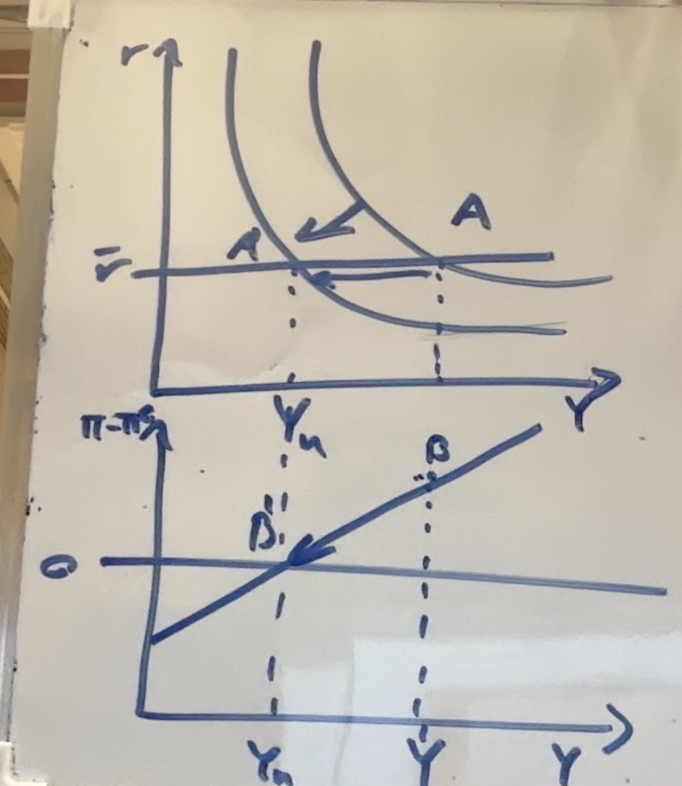 r
A
A'
r̄
Yn
Y
π-πᵉ
B
B'
0
Yn
Y
Y